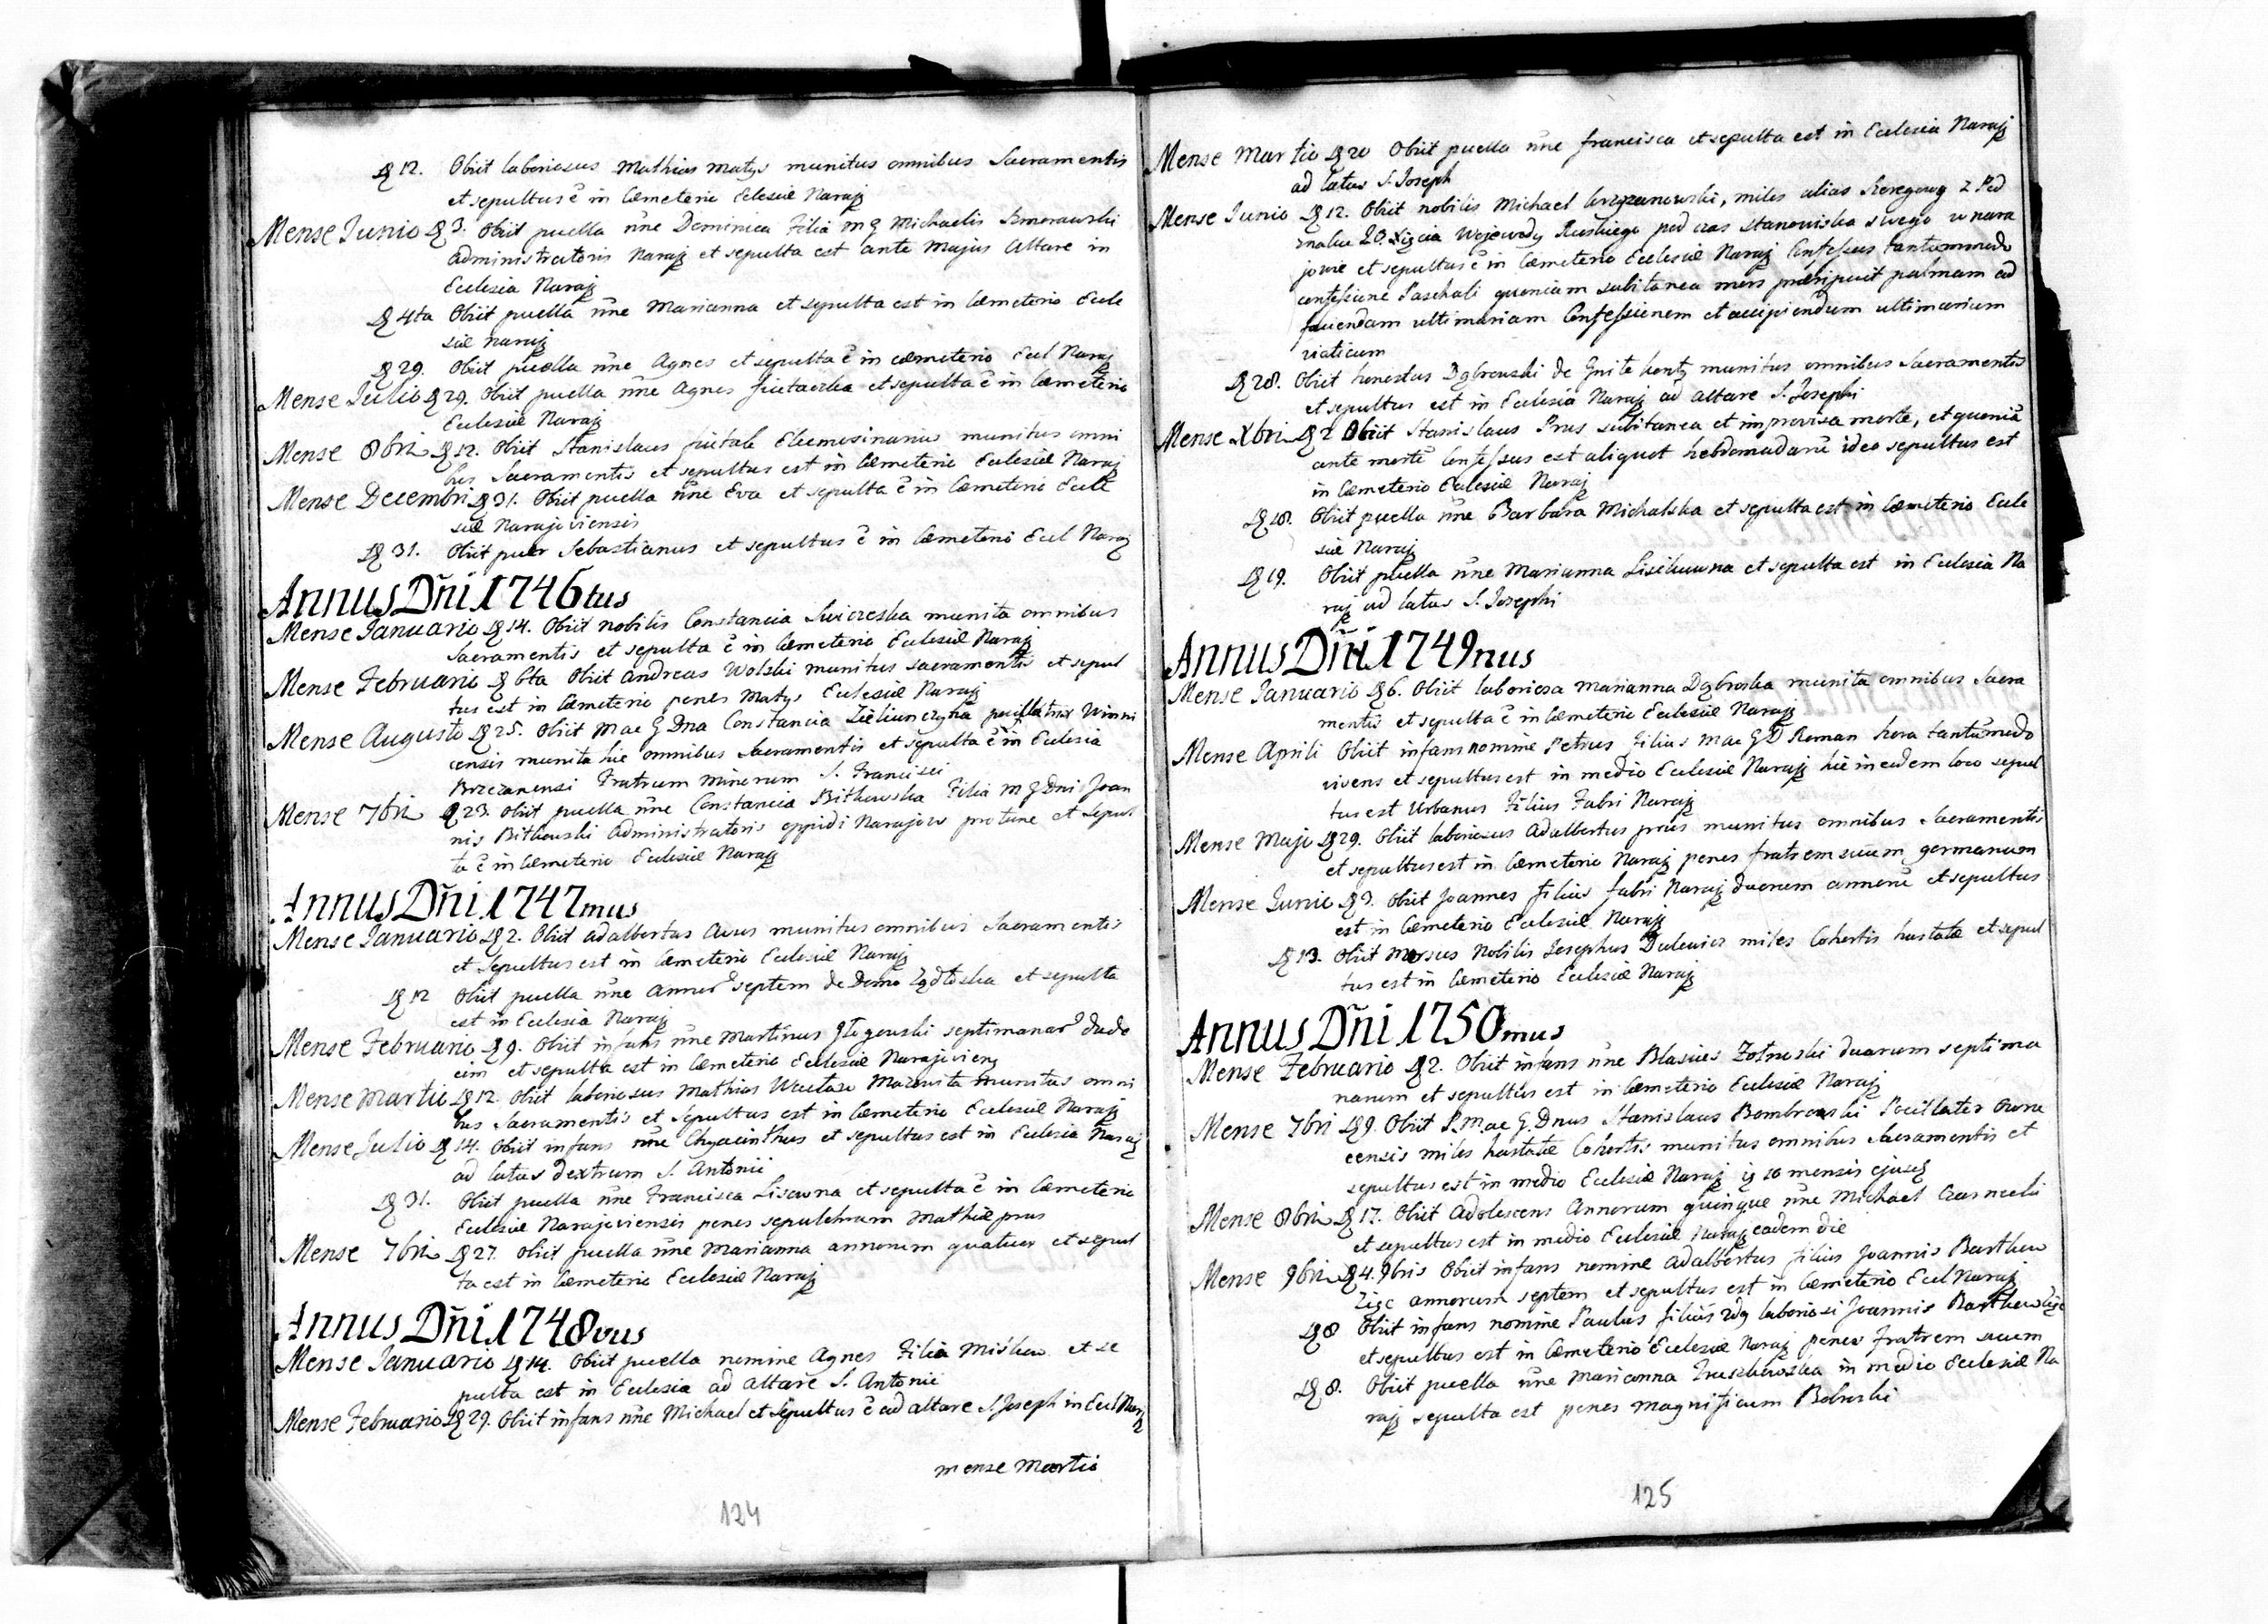 12. Obiit laboriosus Mathias Matys munitus omnibus Sacramentis
et sepultus ẽ in Cæmeterio Eclesiæ Naraj
Mense Junio 3. Obiit puella nñe Dominica Filia M G Michaelis
administratoris Naraj et sepulta est ante Majus Altare in
Ecclesia Naraj
4ta Obiit puella nñe Marianna et sepulta est in Cæmeterio Eccle
siæ Naraj
29. Obiit puella nñe Agnes et sepulta ẽ in cæmeterio Eccl Naraj
Mense Julio 29. Obiit puella nñe Agnes et sepulta ẽ in Cæmeterio
Ecclesiæ Naraj
Mense 8bri 12. Obiit Stanislaus Eleemosinarius munitus omni
bus Sacramentis et sepultus est in Cæmeterio Ecclesiæ Naraj
Mense Decembri 31. Obiit puella nñe Eva et sepulta ẽ in Cæmeterio Eccle
siæ Narajoviensis
31. Obiit puer Sebastianus et sepultus ẽ in Cæmeterio Eccl Naraj
Annus Dñi 1746tus
Mense Januario 14. Obiit nobilis Constancia munita omnibus
Sacramentis et sepulta ẽ in Cæmeterio Ecclesiæ Naraj
Mense Februario 6ta Obiit Andreas Wolski munitus sacramentis et sepul
tus est in Cæmeterio penes Matys Ecclesiæ Naraj
Mense Augusto 25. Obiit Mae G Dna Constancia
censis munita hic omnibus Sacramentis et sepulta ẽ in Ecclesia
Brzezanensi Fratrum Minorum S. Francisci
Mense 7bri 23. Obiit puella nñe Constancia Bitkowska Filia M G Dni Joan
nis Bitkowski Administratoris oppidi Narajow pro tunc et sepul
ta ẽ in Cæmeterio Ecclesiæ Naraj
Annus Dñi 1747mus
Mense Januario 2. Obiit Adalbertus munitus omnibus Sacramentis
et sepultus est in Cæmeterio Ecclesiæ Naraj
12 Obiit puella nñe annor septem de Domo et sepulta
est in Ecclesia Naraj
Mense Februario 9. Obiit infans nñe Martinus septimanar duode
cim et sepulta est in Cæmeterio Ecclesiæ Narajovien
Mense Martio 12. Obiit laboriosus Mathias munitus omni
bus Sacramentis et sepultus est in Cæmeterio Ecclesiæ Naraj
Mense Julio 14. Obiit infans nñe Chyacinthus et sepultus est in Ecclesia Naraj
ad latus dextrum S. Antonii
31. Obiit puella nñe Francisca Lisowna et sepulta ẽ in Cæmeterio
Ecclesiæ Narajoviensis penes sepulchrum Mathiæ prus
Mense 7bri 27. Obiit puella nñe Marianna annorum quatuor et sepul
ta est in Cæmeterio Ecclesiæ Naraj
Annus Dñi 1748vus
Mense Januario 14. Obiit puella nomine Agnes Filia Miśkow et se
pulta est in Ecclesia ad altare S. Antonii
Mense Februario 29. Obiit infans nñe Michael et sepultus ẽ ad altare S. Joseph in Eccl Naraj
mense Martio
124
Mense Martio 20 Obiit puella nñe Francisca et sepulta est in Ecclesia Naraj
ad latus S. Joseph
Mense Junio 12. Obiit nobilis Michael miles alias Szeregowy z Pod
znaku XOięcia Wojewody Ruskiego pod czas stanowiska swego w nara
jowie et sepultus ẽ in Cæmeterio Ecclesiæ Naraj Confessus tantummodo
confessione Paschali quoniam subitanea mors præripuit palmam ad
faciendam ultimariam Confessionem et accipiendum ultimarium
viaticum
28. Obiit honestus Dąbrowski de munitus omnibus Sacramentis
et sepultus est in Ecclesia Naraj ad altare S. Josephi
Mense Xbri 2 Obiit Stanislaus Prus subitanea et improvisa morte, et quoniã
ante mortẽ Confessus est aliquot hebdomadarũ ideo sepultus est
in Cæmeterio Ecclesiæ Naraj
18. Obiit puella nñe Barbara Michalska et sepulta est in Cæmeterio Eccle
siæ Naraj
19. Obiit puella nñe Marianna et sepulta est in Ecclesia Na
raj ad latus S. Josephi
Annus Dñi 1749nus
Mense Januario 6. Obiit laboriosa Marianna Dąbroska munita omnibus Sacra
mentis et sepulta ẽ in Cæmeterio Ecclesiæ Naraj
Mense Aprili Obiit infans nomine Petrus Filius Mae G D Roman hora tantũmodo
vivens et sepultus est in medio Ecclesiæ Naraj hic in eodem loco sepul
tus est Urbanus Filius Fabri Naraj
Mense Majo 29. Obiit laboriosus Adalbertus prus munitus omnibus Sacramentis
et sepultus est in Cæmeterio Naraj penes fratrem suum germanum
Mense Junio 3. Obiit Joannes filius fabri Naraj duorum annorũ et sepultus
est in Cæmeterio Ecclesiæ Naraj
13. Obiit Nobilis Josephus Dulewicz miles Cohortis hastatæ et sepul
tus est in Cæmeterio Ecclesiæ Naraj
Annus Dñi 1750mus
Mense Februario 2. Obiit infans nñe Blasius duarum septima
narum et sepultus est in Cæmeterio Ecclesiæ Naraj
Mense 7bri 9. Obiit P. Mae G. Dnus Stanislaus
censis miles hastatæ Cohortis munitus omnibus Sacramentis et
sepultus est in medio Ecclesiæ Naraj 10 mensis ejusd
Mense 8bri 17. Obiit Adolescens Annorum quinque nñe Michael
et sepultus est in medio Ecclesiæ Naraj eadem die
Mense 9bri 4. 9bris Obiit infans nomine Adalbertus filius Joannis Barthow
annorum septem et sepultus est in Cæmeterio Eccl Naraj
8 Obiit infans nomine Paulus filius laboriosi Joannis
et sepultus est in Cæmeterio Ecclesiæ Naraj penes Fratrem suum
8. Obiit puella nñe Marianna in medio Ecclesiæ Na
raj sepulta est penes magnificum Bobrski
125